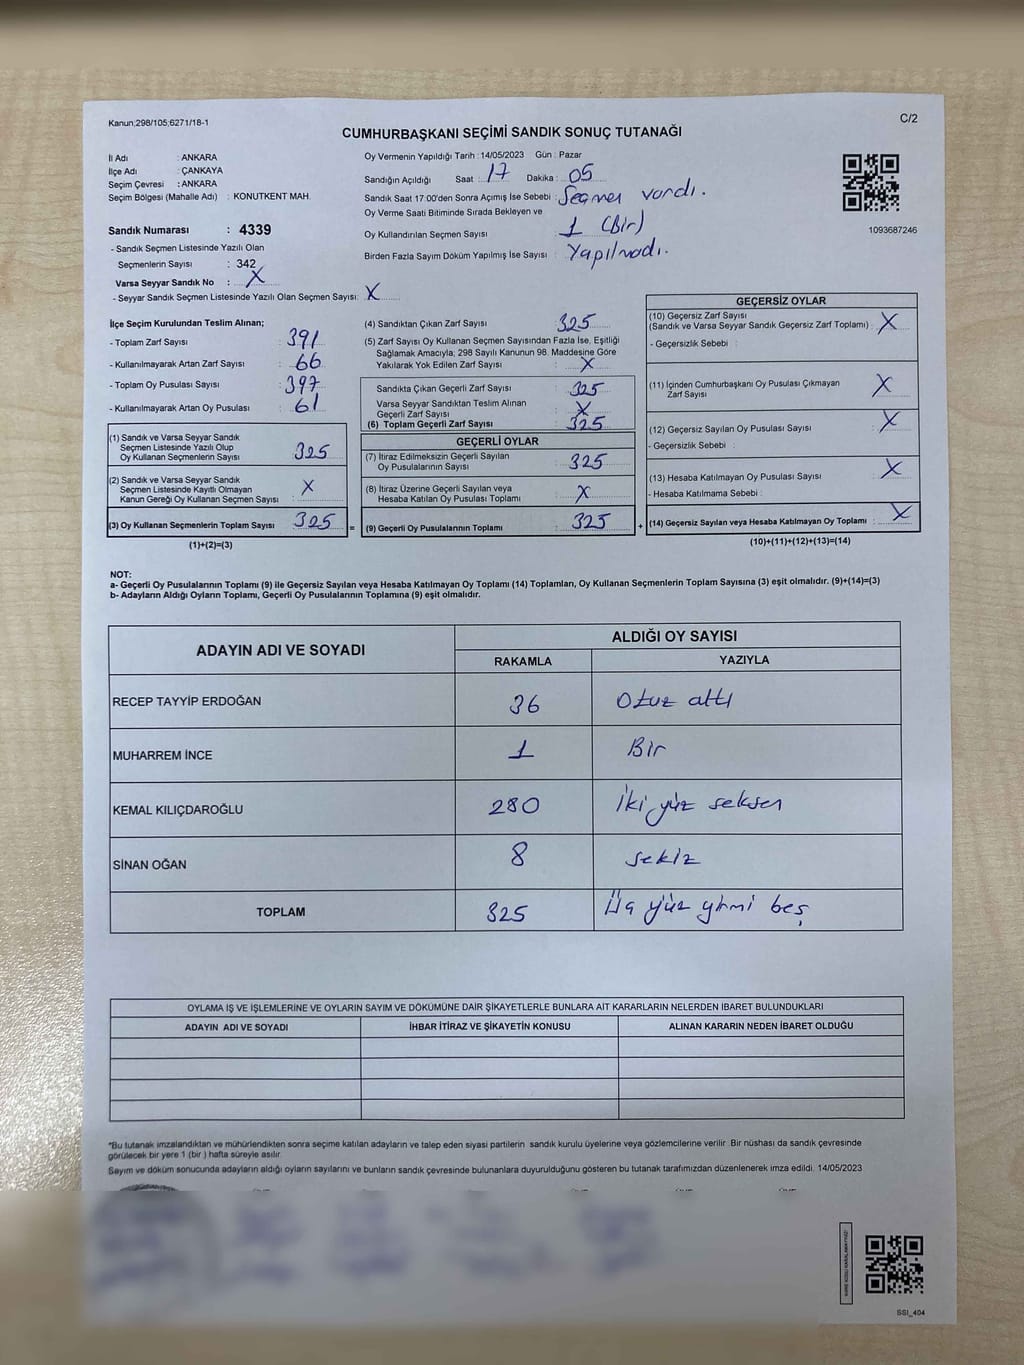 Kanun;298/105;6271/18-1
C/2
CUMHURBAŞKANI SEÇİMİ SANDIK SONUÇ TUTANAĞI
İl Adı : ANKARA
İlçe Adı : ÇANKAYA
Seçim Çevresi : ANKARA
Seçim Bölgesi (Mahalle Adı) : KONUTKENT MAH.
Sandık Numarası : 4339
- Sandık Seçmen Listesinde Yazılı Olan
Seçmenlerin Sayısı : 342
Varsa Seyyar Sandık No : X
- Seyyar Sandık Seçmen Listesinde Yazılı Olan Seçmen Sayısı: X
Oy Vermenin Yapıldığı Tarih : 14/05/2023 Gün : Pazar
Sandığın Açıldığı Saat : 17 Dakika : 05
Sandık Saat 17:00'den Sonra Açımış İse Sebebi : Seçmen vardı.
Oy Verme Saati Bitiminde Sırada Bekleyen ve
Oy Kullandırılan Seçmen Sayısı : 1 (Bir)
Birden Fazla Sayım Döküm Yapılmış İse Sayısı : Yapılmadı.
1093687246
İlçe Seçim Kurulundan Teslim Alınan;
- Toplam Zarf Sayısı : 391
- Kullanılmayarak Artan Zarf Sayısı : 66
- Toplam Oy Pusulası Sayısı : 397
- Kullanılmayarak Artan Oy Pusulası : 61
(1) Sandık ve Varsa Seyyar Sandık
Seçmen Listesinde Yazılı Olup
Oy Kullanan Seçmenlerin Sayısı : 325
(2) Sandık ve Varsa Seyyar Sandık
Seçmen Listesinde Kayıtlı Olmayan
Kanun Gereği Oy Kullanan Seçmen Sayısı : X
(3) Oy Kullanan Seçmenlerin Toplam Sayısı : 325 =
(1)+(2)=(3)
(4) Sandıktan Çıkan Zarf Sayısı : 325
(5) Zarf Sayısı Oy Kullanan Seçmen Sayısından Fazla İse, Eşitliği
Sağlamak Amacıyla; 298 Sayılı Kanunun 98. Maddesine Göre
Yakılarak Yok Edilen Zarf Sayısı : X
Sandıkta Çıkan Geçerli Zarf Sayısı : 325
Varsa Seyyar Sandıktan Teslim Alınan
Geçerli Zarf Sayısı : X
(6) Toplam Geçerli Zarf Sayısı : 325
GEÇERLİ OYLAR
(7) İtiraz Edilmeksizin Geçerli Sayılan
Oy Pusulalarının Sayısı : 325
(8) İtiraz Üzerine Geçerli Sayılan veya
Hesaba Katılan Oy Pusulası Toplamı : X
(9) Geçerli Oy Pusulalarının Toplamı : 325 +
GEÇERSİZ OYLAR
(10) Geçersiz Zarf Sayısı
(Sandık ve Varsa Seyyar Sandık Geçersiz Zarf Toplamı) : X
- Geçersizlik Sebebi :
(11) İçinden Cumhurbaşkanı Oy Pusulası Çıkmayan
Zarf Sayısı : X
(12) Geçersiz Sayılan Oy Pusulası Sayısı : X
- Geçersizlik Sebebi :
(13) Hesaba Katılmayan Oy Pusulası Sayısı : X
- Hesaba Katılmama Sebebi :
(14) Geçersiz Sayılan veya Hesaba Katılmayan Oy Toplamı : X
(10)+(11)+(12)+(13)=(14)
NOT:
a- Geçerli Oy Pusulalarının Toplamı (9) ile Geçersiz Sayılan veya Hesaba Katılmayan Oy Toplamı (14) Toplamları, Oy Kullanan Seçmenlerin Toplam Sayısına (3) eşit olmalıdır. (9)+(14)=(3)
b- Adayların Aldığı Oyların Toplamı, Geçerli Oy Pusulalarının Toplamına (9) eşit olmalıdır.
ADAYIN ADI VE SOYADI
ALDIĞI OY SAYISI
RAKAMLA YAZIYLA
RECEP TAYYİP ERDOĞAN 36 Otuz altı
MUHARREM İNCE 1 Bir
KEMAL KILIÇDAROĞLU 280 İki yüz seksen
SİNAN OĞAN 8 sekiz
TOPLAM 325 Üç yüz yirmi beş
OYLAMA İŞ VE İŞLEMLERİNE VE OYLARIN SAYIM VE DÖKÜMÜNE DAİR ŞİKAYETLERLE BUNLARA AİT KARARLARIN NELERDEN İBARET BULUNDUKLARI
ADAYIN ADI VE SOYADI İHBAR İTİRAZ VE ŞİKAYETİN KONUSU ALINAN KARARIN NEDEN İBARET OLDUĞU
*Bu tutanak imzalandıktan ve mühürlendikten sonra seçime katılan adayların ve talep eden siyasi partilerin sandık kurulu üyelerine veya gözlemcilerine verilir. Bir nüshası da sandık çevresinde
görülecek bir yere 1 (bir ) hafta süreyle asılır.
Sayım ve döküm sonucunda adayların aldığı oyların sayılarını ve bunların sandık çevresinde bulunanlara duyurulduğunu gösteren bu tutanak tarafımızdan düzenlenerek imza edildi. 14/05/2023
SSI_404